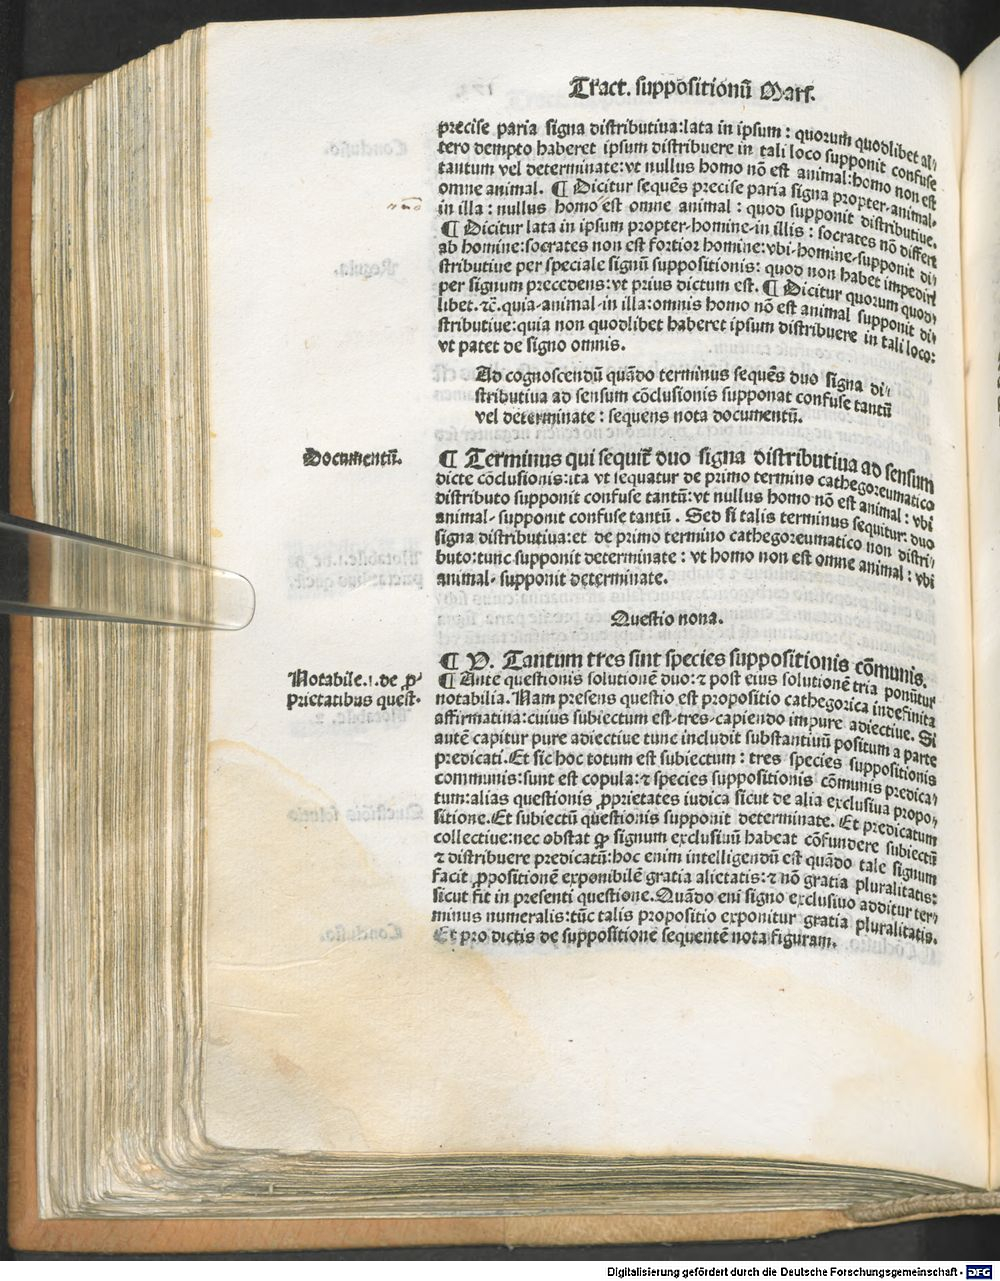 Tract. suppositionũ Mars.
precise paria signa distributiua: lata in ipsum: quorum quodlibet al⸗
tero dempto haberet ipsum distribuere in tali loco supponit confuse
tantum vel determinate: vt nullus homo nõ est animal: homo non est
omne animal. ¶ Dicitur sequẽs precise paria signa propter⸗animal⸗
in illa: nullus homo est omne animal: quod supponit distributiue.
¶ Dicitur lata in ipsum propter⸗homine⸗in illis: socrates nõ differt
ab homine: socrates non est fortior homine: vbi⸗homine⸗supponit di⸗
stributiue per speciale signũ suppositionis: quod non habet impediri
per signum precedens: vt prius dictum est. ¶ Dicitur quorum quod⸗
libet. ⁊c̃. quia⸗animal⸗in illa: omnis homo nõ est animal supponit di⸗
stributiue: quia non quodlibet haberet ipsum distribuere in tali loco:
vt patet de signo omnis.
Ad cognoscendũ quãdo terminus sequẽs duo signa di⸗
stributiua ad sensum cõclusionis supponat confuse tantũ
vel determinate: sequens nota documentũ.
Documentũ.
¶ Terminus qui sequit̃ duo signa distributiua ad sensum
dicte cõclusionis: ita vt sequatur de primo termino cathegoreumatico
distributo supponit confuse tantũ: vt nullus homo nõ est animal: vbi
animal⸗ supponit confuse tantũ. Sed si talis terminus sequitur: duo
signa distributiua: et de primo termino cathegoreumatico non distri⸗
buto: tunc supponit determinate: vt homo non est omne animal: vbi
animal⸗ supponit determinate.
Questio nona.
¶ V. Tantum tres sint species suppositionis cõmunis.
Notabile .1. de ꝓ⸗
prietatibus quest⸗
¶ Ante questionis solutionẽ duo: ⁊ post eius solutionẽ tria ponũtur
notabilia. Nam presens questio est propositio cathegorica indefinita
affirmatiua: cuius subiectum est⸗tres⸗capiendo impure adiectiue. Si
autẽ capitur pure adiectiue tunc includit substantiuũ positum a parte
predicati. Et sic hoc totum est subiectum: tres species suppositionis
communis: sunt est copula: ⁊ species suppositionis cõmunis predica⸗
tum: alias questionis ꝓprietates iudica sicut de alia exclusiua propo⸗
sitione. Et subiectũ questionis supponit determinate. Et predicatum
collectiue: nec obstat ꝙ signum exclusiuũ habeat cõfundere subiectũ
⁊ distribuere predicatũ: hoc enim intelligendũ est quãdo tale signum
facit ꝓpositionẽ exponibilẽ gratia alietatis: ⁊ nõ gratia pluralitatis:
sicut fit in presenti questione. Quãdo eni signo exclusiuo additur ter⸗
minus numeralis: tũc talis propositio exponitur gratia pluralitatis.
Et pro dictis de suppositione sequentẽ nota figuram.
Digitalisierung gefördert durch die Deutsche Forschungsgemeinschaft - DFG